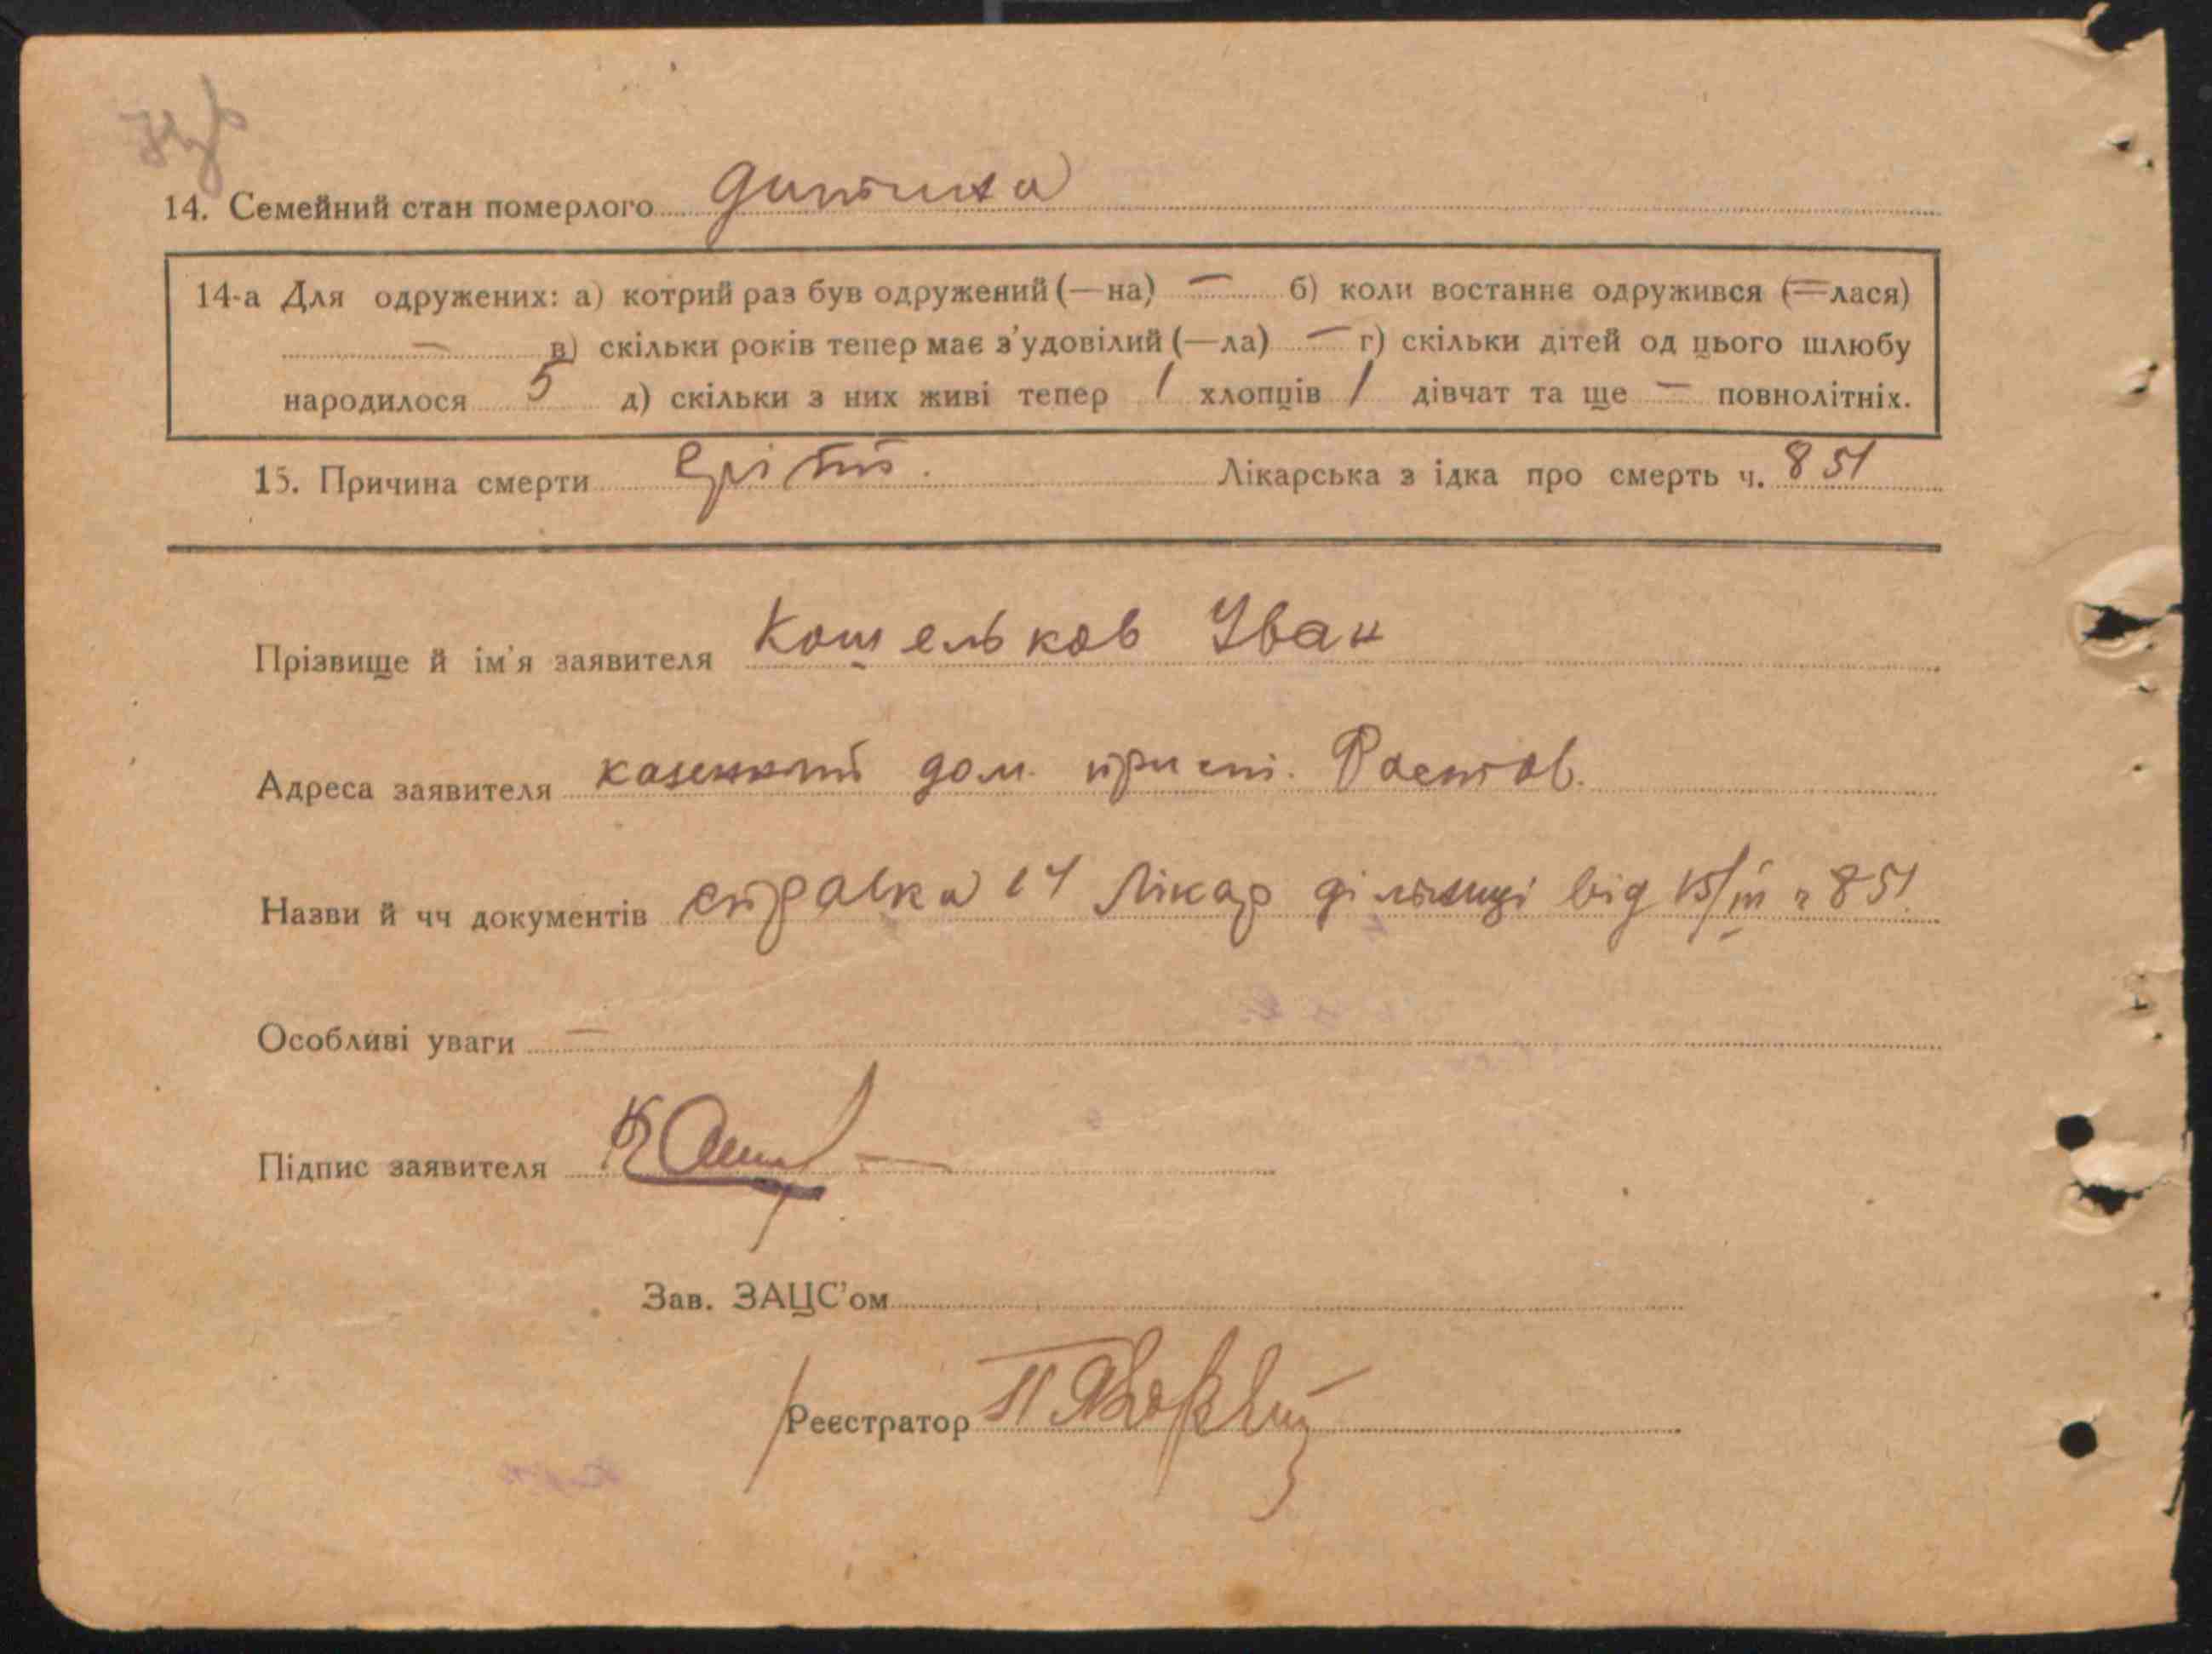 14. Семейний стан померлого дитина
14-а Для одружених: а) котрий раз був одружений (—на) — б) коли востаннє одружився (—лася)
— в) скільки років тепер має з'удовілий (—ла) — г) скільки дітей од цього шлюбу
народилося 5 д) скільки з них живі тепер 1 хлопців 1 дівчат та ще — повнолітніх.
15. Причина смерти Лікарська з ідка про смерть ч. 851
Прізвище й ім'я заявителя Кошельков Іван
Адреса заявителя дом Ростов.
Назви й чч документів справка 14 Лікар дільниці від 15/III 851
Особливі уваги —
Підпис заявителя
Зав. ЗАЦС'ом
Реєстратор